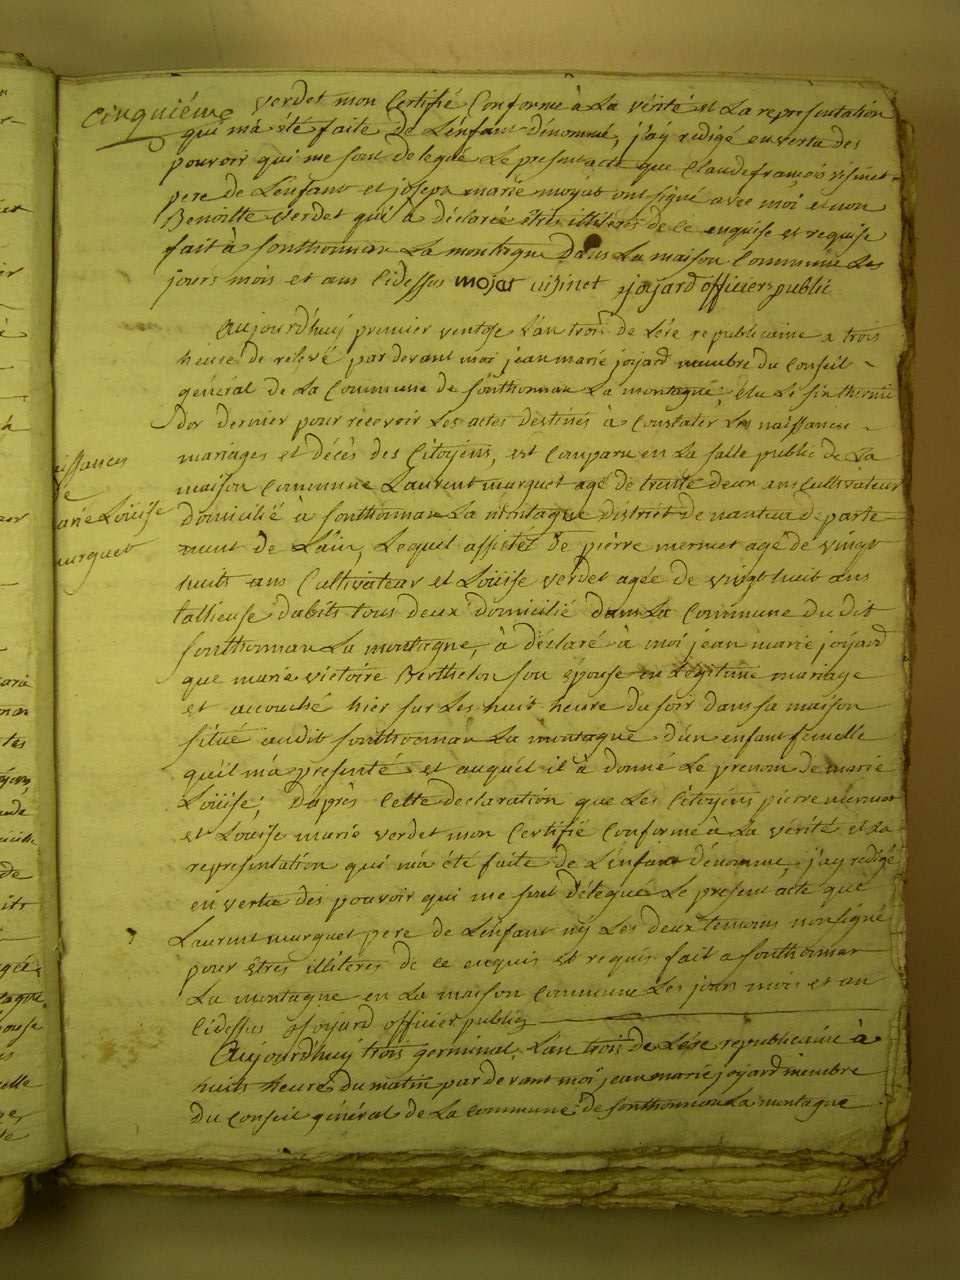 Cinquiéme
verdet mon Certifié Conforme à La vérité et La representation
qui má été faite de Lénfant dénommé, j'aÿ redigé en vertu des
pouvoir qui me sont delegué Le present acte que Claude françois visinet
pere de Lenfant et joseph marie mojat ont signé avec moi et non
Benoitte verdet qui à déclaréé êtres illiteres de ce enquise et requise
fait à Sonthonnax La montagne Dans La maison Commune Les
jours mois et ans Cidessus mojat visinet Joyard officier public
Aujourd'huÿ premier ventose L'an trois de L'ére republicaine a trois
heure de relevé par devant moi jean marie joÿard membre du Conseil
general de La Commune de Sonthonnax La montagne élu Le six thermi
dor dernier pour recevoir Les actes destinés à Constater Les naissances
mariages et décès des Citoÿens, est Comparu en La salle public de La
maison Commune Laurent murguet agé de trente deux ans Cultivateur
domicilié à Sonthonnax La montagne district de nantua departe
ment de Láin, Lequel assistét de pierre mermet agé de vingt
huits ans Cultivateur et Loüise verdet agée de vingt huit ans
tallieuse d'abits tous deux domicilié dans La Commune Du dit
Sonthonnax La montagne, à déclaré à moi jean marie joÿard
que marie victoire Berthelon son épouse en Légitime mariage
et accouché hier sur Les huit heure du soir dans sa maison
situé audit Sonthonnax La montagne d'un enfant femelle
qu'il má presenté et auquel il à donné Le prenom de marie
Loüise; daprès Cette declaration que Les Citoÿens pierre mermet
et Loüise marie verdet mon Certifié Conforme à La vérité et La
representation qui má été faite de Lénfant dénommé, j'aÿ redigé
en vertu des pouvoir qui me sont délegué Le present acte que
Laurent murguet pere de Lénfant nÿ Les deux temoins non signé
pour êtres illitéres de ce enquis et requis fait a Sonthonnax
La montagne en La maison Commune Les jour mois et an
Cidessus Joyard officier public
Aujourd'huÿ trois germinal L'an trois de L'ére republicaine à
huits heures du matin par devant moi jean marie joyard membre
du Conseil général de La Commune de Sonthonnax La montagne
aissances
de
arie Loüise
murguet